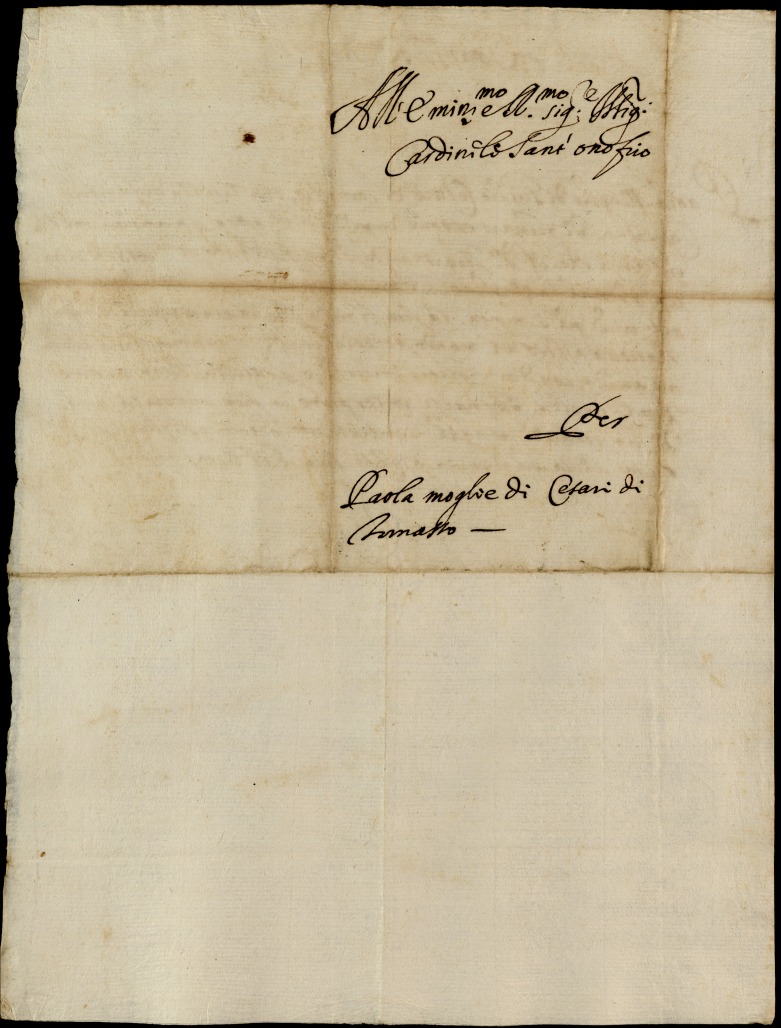 All'Emin:mo e R.mo sig:re Il sig:
Cardinile Sant'onofrio
Per
Paola moglie di Cesari di
Tomasso —